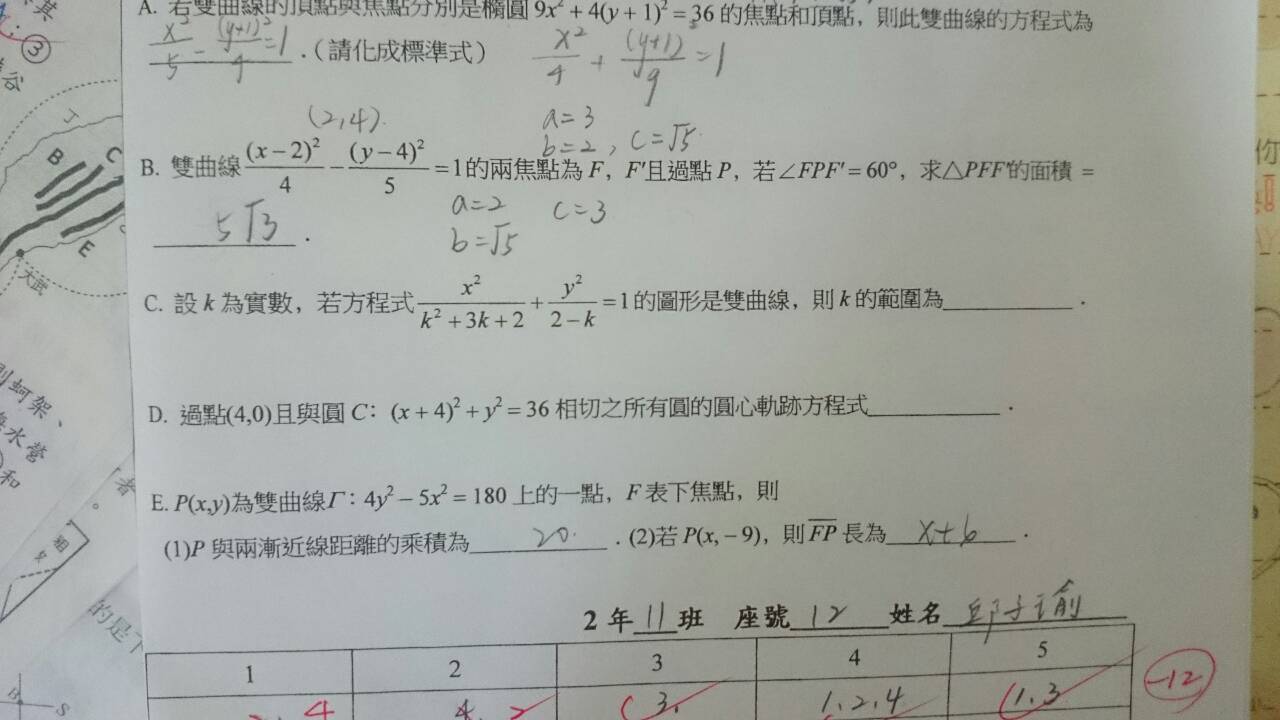 A. 若雙曲線的頂點與焦點分別是橢圓 9x² + 4(y + 1)² = 36 的焦點和頂點，則此雙曲線的方程式為
x²/5 - (y+1)²/4 = 1 .（請化成標準式） x²/4 + (y+1)²/9 = 1
③
(2,4)
a=3
b=2, c=√5
B. 雙曲線 (x−2)²/4 − (y−4)²/5 = 1的兩焦點為 F，F′且過點 P，若∠FPF′ = 60°，求△PFF′的面積 =
a=2 c=3
5√3 .
b=√5
C. 設 k 為實數，若方程式 x²/(k²+3k+2) + y²/(2−k) = 1的圖形是雙曲線，則 k 的範圍為____________ .
D. 過點(4,0)且與圓 C：(x + 4)² + y² = 36 相切之所有圓的圓心軌跡方程式____________ .
E. P(x,y)為雙曲線Γ：4y² − 5x² = 180 上的一點，F 表下焦點，則
(1)P 與兩漸近線距離的乘積為 20. .(2)若 P(x, −9)，則 FP 長為 x+6 .
2 年 11 班 座號 12 姓名
1 2 3 4 5
4 3. 1.2.4 1.3
-12
B C
E
大武
的是
B S